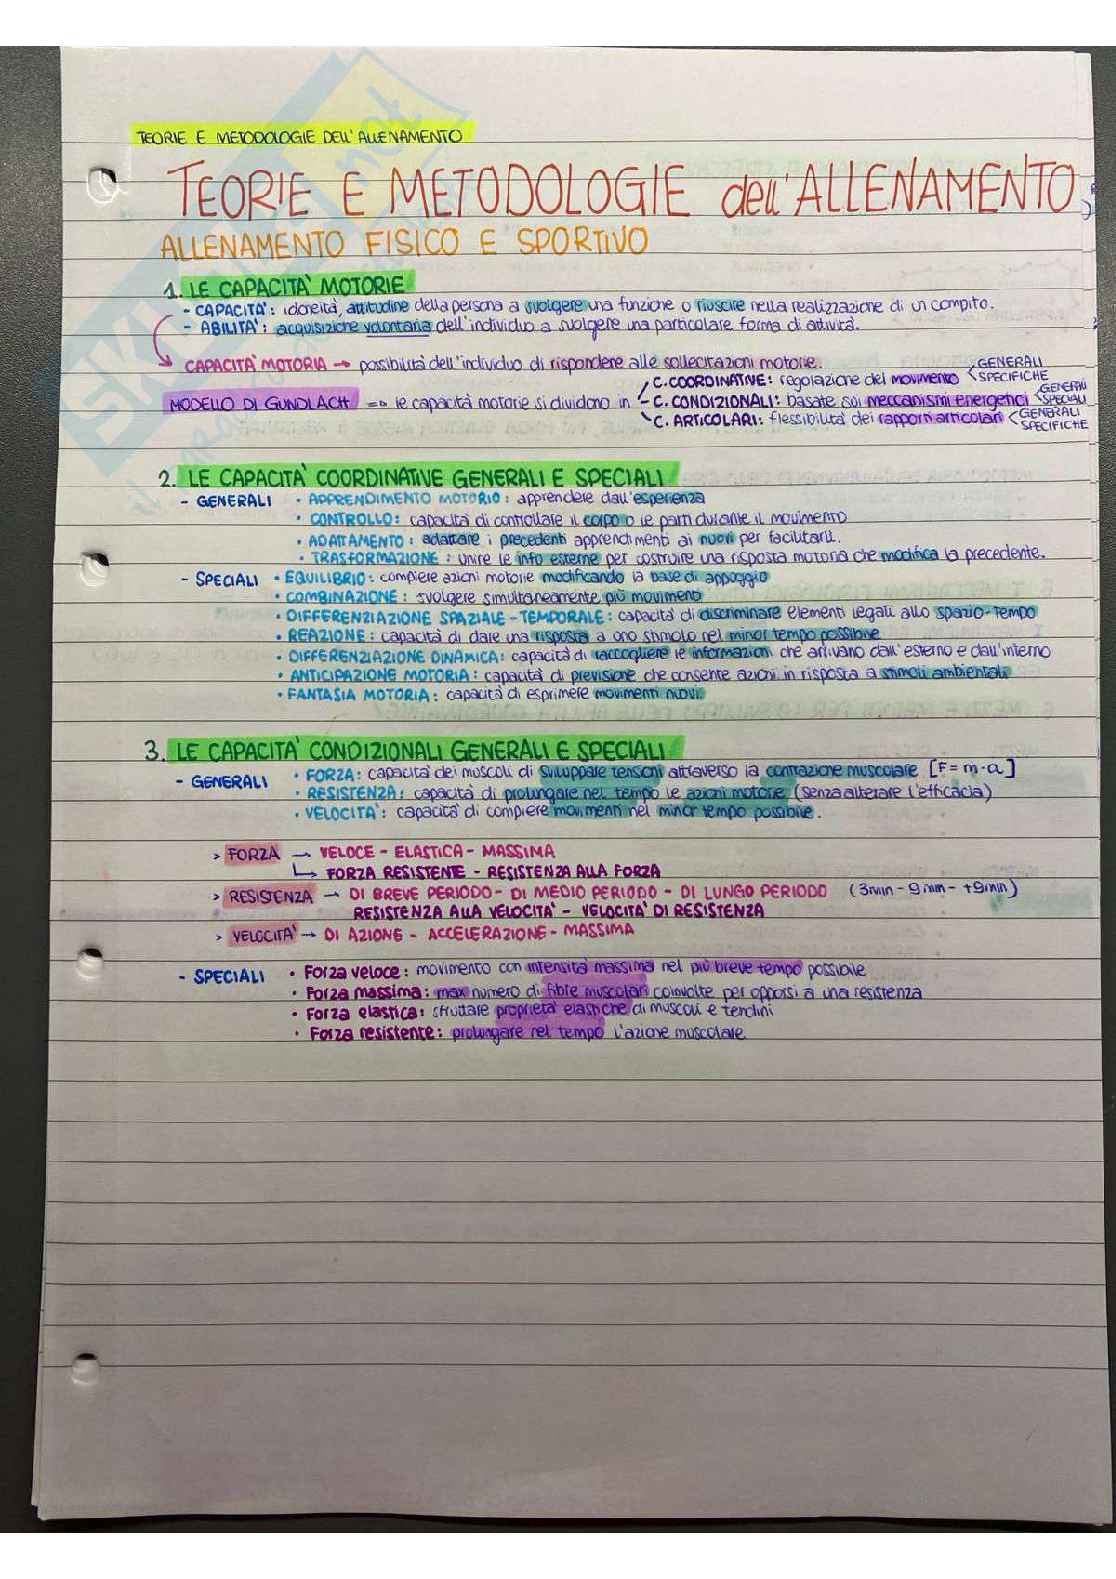 TEORIE E METODOLOGIE DELL'ALLENAMENTO
TEORIE E METODOLOGIE dell'ALLENAMENTO
ALLENAMENTO FISICO E SPORTIVO
1. LE CAPACITA' MOTORIE
- CAPACITA': idoneità, attitudine della persona a svolgere una funzione o riuscire nella realizzazione di un compito.
- ABILITA': acquisizione volontaria dell'individuo a svolgere una particolare forma di attività.
CAPACITA' MOTORIA → possibilità dell'individuo di rispondere alle sollecitazioni motorie.
MODELLO DI GUNDLACH => le capacità motorie si dividono in
C. COORDINATIVE: regolazione del movimento < GENERALI SPECIFICHE
C. CONDIZIONALI: basate sui meccanismi energetici < GENERALI SPECIALI
C. ARTICOLARI: flessibilità dei rapporti articolari < GENERALI SPECIFICHE
2. LE CAPACITA' COORDINATIVE GENERALI E SPECIALI
- GENERALI • APPRENDIMENTO MOTORIO: apprendere dall'esperienza
• CONTROLLO: capacità di controllare il corpo o le parti durante il movimento
• ADATTAMENTO: adattare i precedenti apprendimenti ai nuovi per facilitarli.
• TRASFORMAZIONE: unire le info esterne per costruire una risposta motoria che modifica la precedente.
- SPECIALI • EQUILIBRIO: compiere azioni motorie modificando la base di appoggio
• COMBINAZIONE: svolgere simultaneamente più movimenti
• DIFFERENZIAZIONE SPAZIALE-TEMPORALE: capacità di discriminare elementi legati allo spazio-tempo
• REAZIONE: capacità di dare una risposta a uno stimolo nel minor tempo possibile
• DIFFERENZIAZIONE DINAMICA: capacità di raccogliere le informazioni che arrivano dall'esterno e dall'interno
• ANTICIPAZIONE MOTORIA: capacità di previsione che consente azioni in risposta a stimoli ambientali
• FANTASIA MOTORIA: capacità di esprimere movimenti nuovi.
3. LE CAPACITA' CONDIZIONALI GENERALI E SPECIALI
- GENERALI • FORZA: capacità dei muscoli di sviluppare tensioni attraverso la contrazione muscolare [F = m·a]
• RESISTENZA: capacità di prolungare nel tempo le azioni motorie (senza alterare l'efficacia)
• VELOCITA': capacità di compiere movimenti nel minor tempo possibile.
> FORZA → VELOCE - ELASTICA - MASSIMA
↳ FORZA RESISTENTE - RESISTENZA ALLA FORZA
> RESISTENZA → DI BREVE PERIODO - DI MEDIO PERIODO - DI LUNGO PERIODO (3min - 9min - +9min)
RESISTENZA ALLA VELOCITA' - VELOCITA' DI RESISTENZA
> VELOCITA' → DI AZIONE - ACCELERAZIONE - MASSIMA
- SPECIALI • Forza veloce: movimento con intensità massima nel più breve tempo possibile
• Forza massima: max numero di fibre muscolari coinvolte per opporsi a una resistenza
• Forza elastica: sfruttare proprietà elastiche di muscoli e tendini
• Forza resistente: prolungare nel tempo l'azione muscolare.